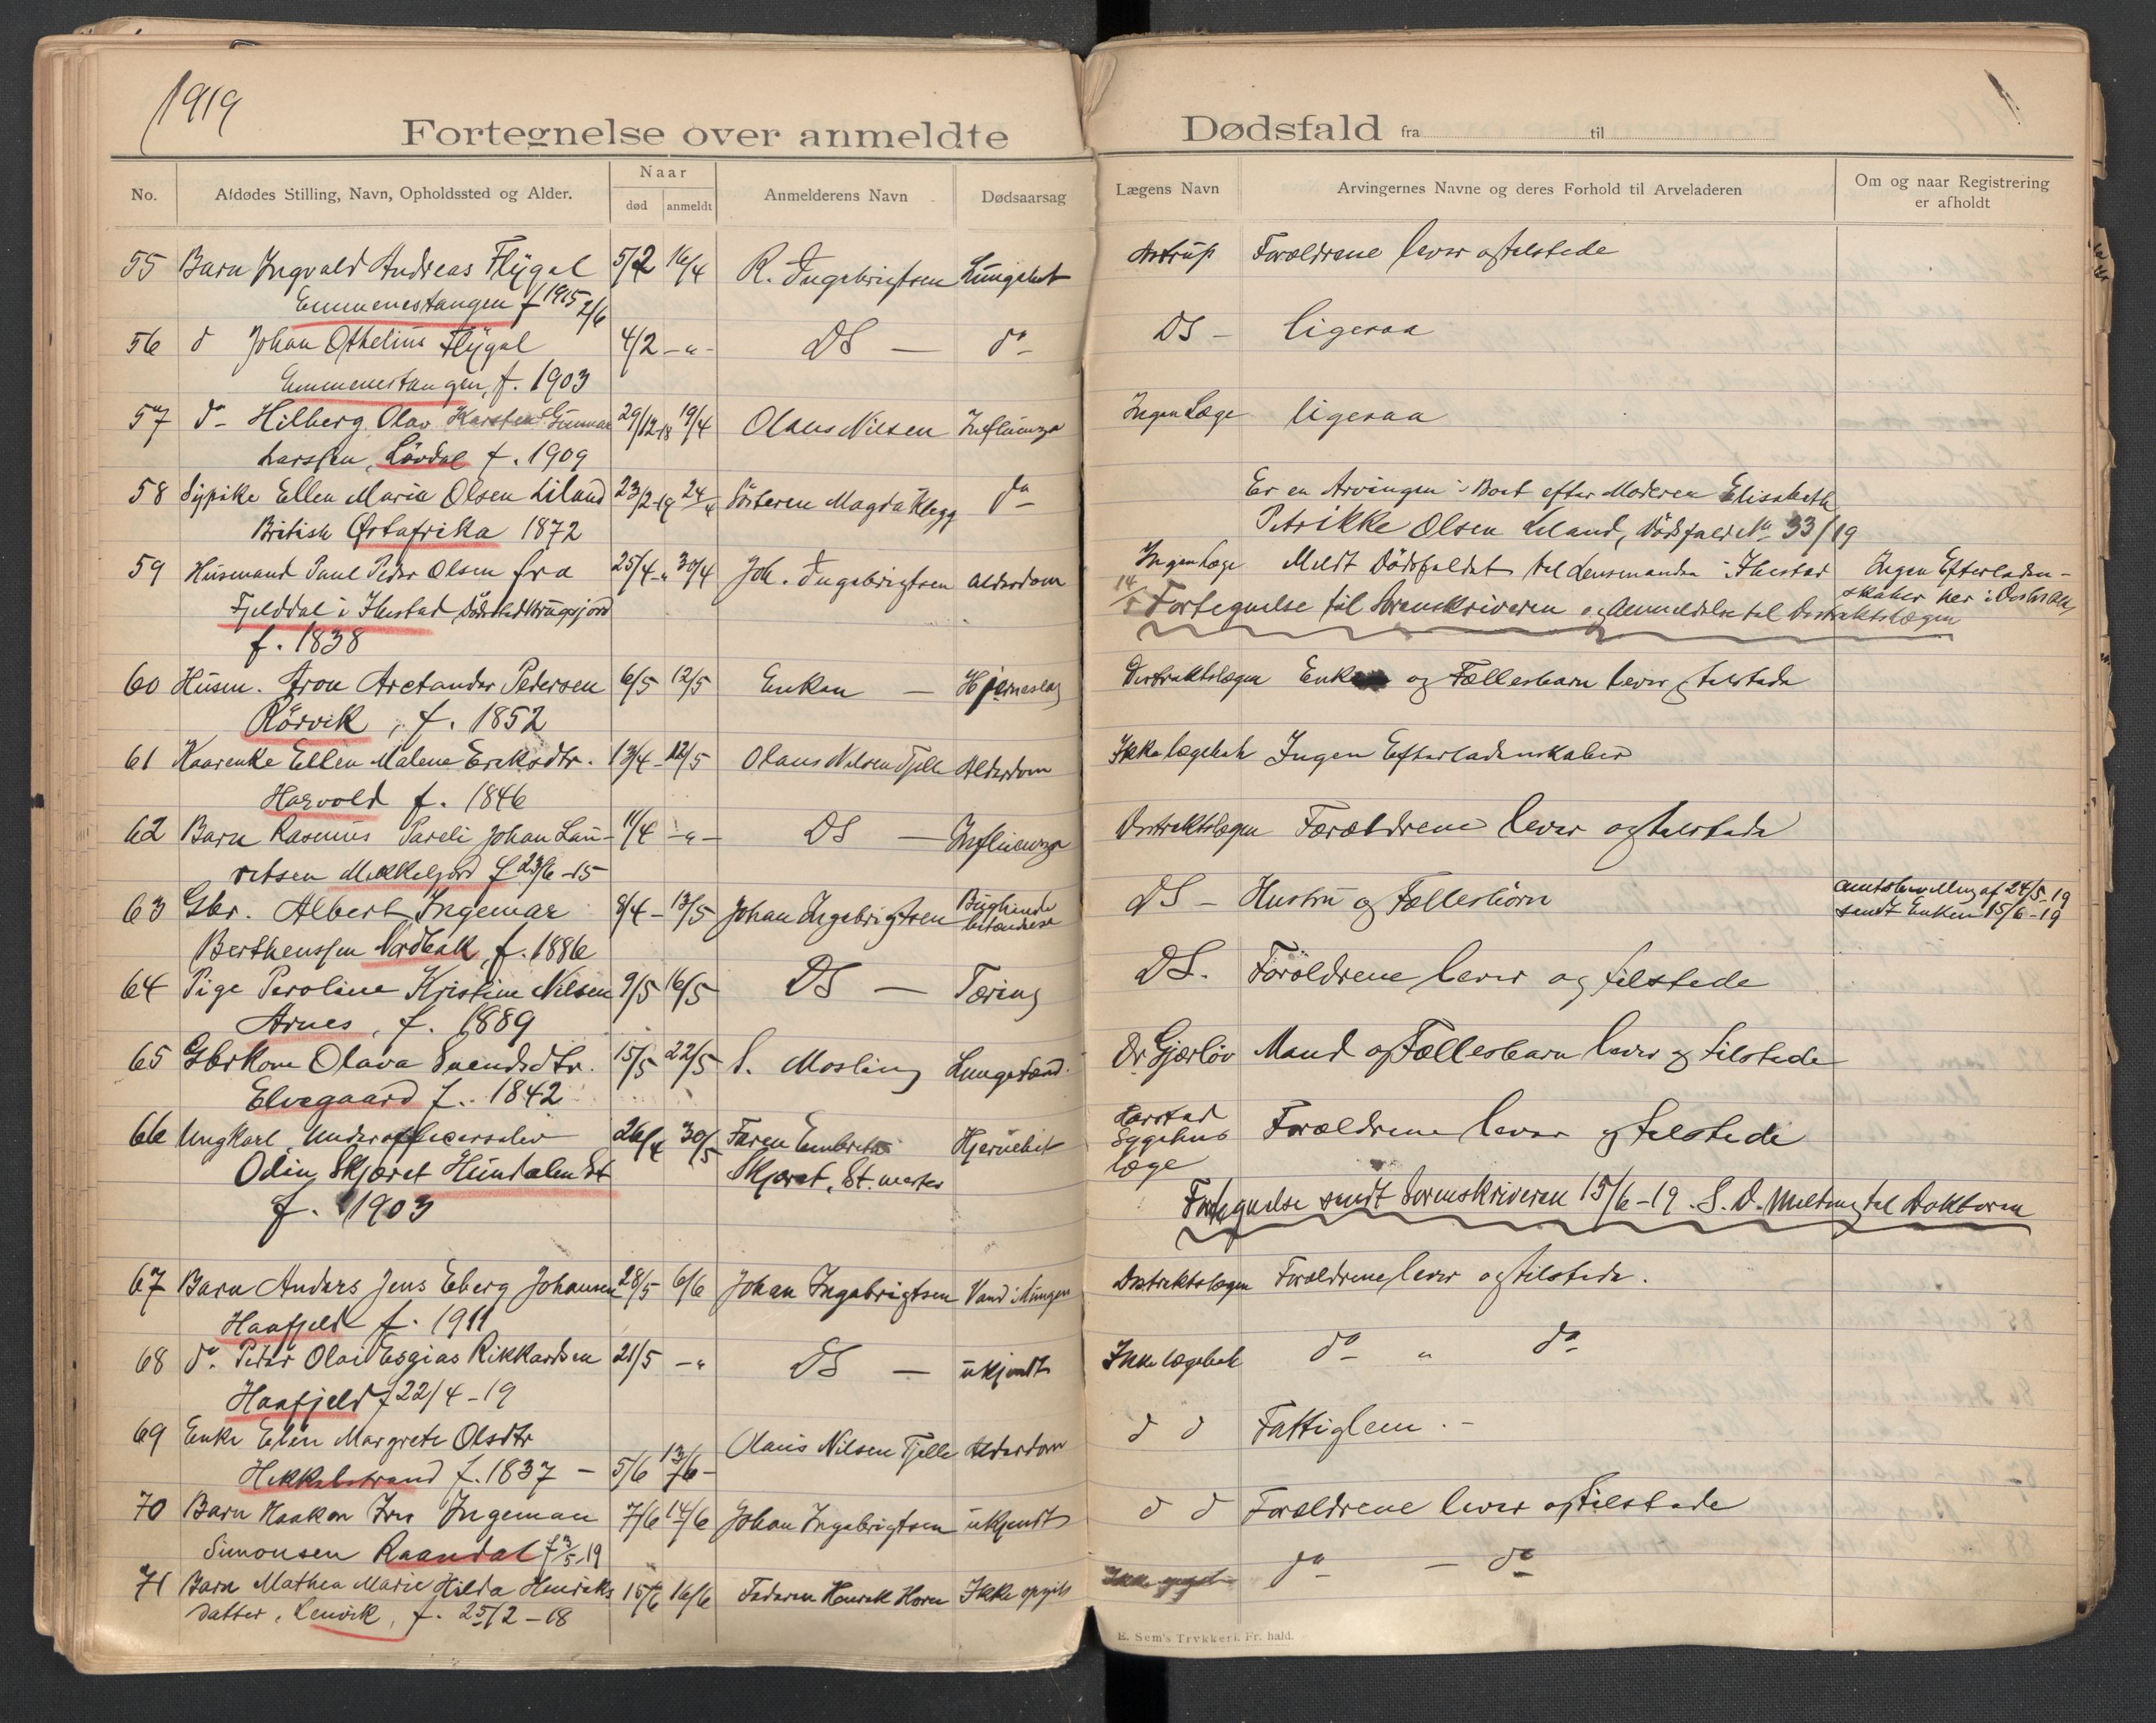 1919
Fortegnelse over anmeldte Dødsfald fra til
No. Afdødes Stilling, Navn, Opholdssted og Alder. Naar død anmeldt Anmelderens Navn Dødsaarsag Lægens Navn Arvingernes Navne og deres Forhold til Arveladeren Om og naar Registrering er afholdt
55 Barn Ingvald Andreas Flygel 5/2 16/4 R. Ingebrigtsen Lungebet Astrup Forældrene lever og tilstede
Emmenestangen f 1915 2/6
56 d Johan Othelius Flygel 4/2 -"- DS — do DS - ligesaa
Emmenestangen, f. 1903
57 do Hilberg Olav Karsten Gunnar 29/12-18 19/4 Olaus Nilsen Influenza Ingen Læge ligesaa
Larssen, Lövdal f. 1909
58 Sypike Ellen Maria Olsen Liland 23/2-19 24/4 Søsteren Magda Klegg do Er en Arvingen i Boet efter Moderen Elisabeth
British Østafrika 1872 Petrikke Olsen Leland, Dødsfald No 33/19
59 Husmand Paul Peder Olsen fra 25/4 " 30/4 Joh. Ingebrigtsen alderdom Ingen Læge Meldt Dødsfaldet til Lensmanden i Ibestad Ingen Efterladen-
Fjelddal i Ibestad Dødssted 14/5 Fortegnelse til Sorenskriveren og Anmeldelse til Distriktslægen skaber her i
f. 1838
60 Husm. Aron Arctander Pedersen 6/5 12/5 Enken — Hjerneslag Distriktslægen Enken og Fællesbarn lever og tilstede
Rörvik, f. 1852
61 Kaarenke Ellen Malene Eriksdtr. 13/4 - 12/5 Olaus Nilsen Fjelle Alderdom Ikke lægebeh Ingen Efterladenskaber
Harvold f. 1846
62 Barn Rasmus Pareli Johan Lau- 11/4 -"- DS — Influenza Distriktslægen Forældrene lever og tilstede
ritsen Mekkelgjord f. 23/6-15
63 Gbr. Albert Ingemar 8/4 - 13/5 Johan Ingebrigtsen Bughinde betændelse DS - Hustru og Fællesbörn Amtsbevilling af 24/5-19
Berthenssen Nordbak, f. 1886 sendt Enken 15/6-19
64 Pige Peroline Kristine Nilsen 9/5 16/5 DS — Tæring DS. Forældrene lever og tilstede
Arnes, f. 1889
65 Gbrkone Olava Svendsdtr. 15/5 22/5 S. Mosling Lungebetænd. Dr Gjærløv Mand og Fællesbarn lever og tilstede
Elvegaard f. 1842
66 Ungkarl Underofficerselev 26/4 30/5 Faren Embrets Hjernebet Harstad Sygehus læge Forældrene lever og tilstede
Odin Skjæret Hundalen St Skjæret, St. mester
f. 1903 Fortegnelse sendt Sorenskriveren 15/6-19. S. D. Melding til Doktoren
67 Barn Anders Jens Eberg Johansen 28/5 6/6 Johan Ingebrigtsen Vand i Lungen Distriktslægen Forældrene lever og tilstede.
Haafjeld f. 1911
68 do Peder Olai Esaias Rikkardsen 21/5 -" DS — ukjendt Ikke lægebeh do " do
Haafjeld f 22/4-19
69 Enke Elen Margrete Olsdtr d d Fattiglem. -
Hekkelstrand f. 1837 - 5/6 13/6 - Olaus Nilsen Fjelle Alderdom
70 Barn Haakon Ingeman 7/6 14/6 Johan Ingebrigtsen ukjendt d d Forældrene lever og tilstede
Simonsen Raandal f 3/5-19
71 Barn Mathea Marie Hilda Henriks 15/6 16/6 Faderen Henrik Horn Ikke opgit do — do
datter, Lenvik, f. 25/2-18
E. Sem's Trykkeri. Fr. hald.